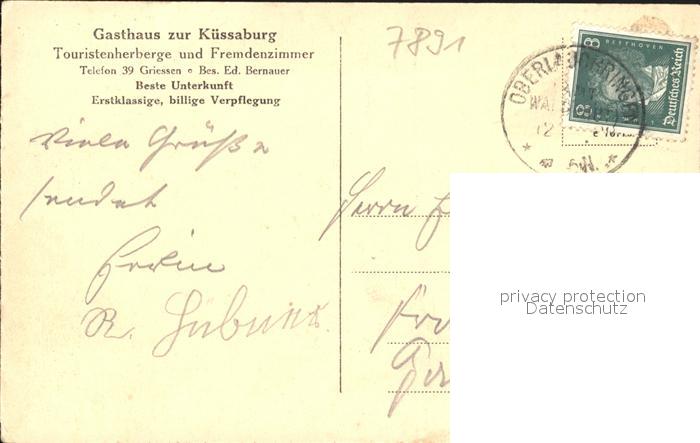 Gasthaus zur Küssaburg
Touristenherberge und Fremdenzimmer
Telefon 39 Griessen • Bes. Ed. Bernauer
Beste Unterkunft
Erstklassige, billige Verpflegung
7891
8 BEETHOVEN 8
Deutsches Reich
OBERLAUCHRINGEN
Viele Grüße
sendet
Erwin
R. Hübner
Herrn
privacy protection
Datenschutz